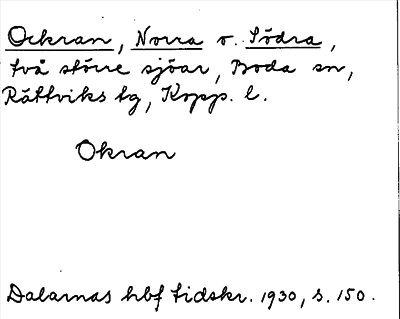 Ockran, Norra o. Södra,
två större sjöar, Boda sn,
Rättviks tg, Kopp. l.
Okran
Dalarnas hbf tidskr. 1930, s. 150.